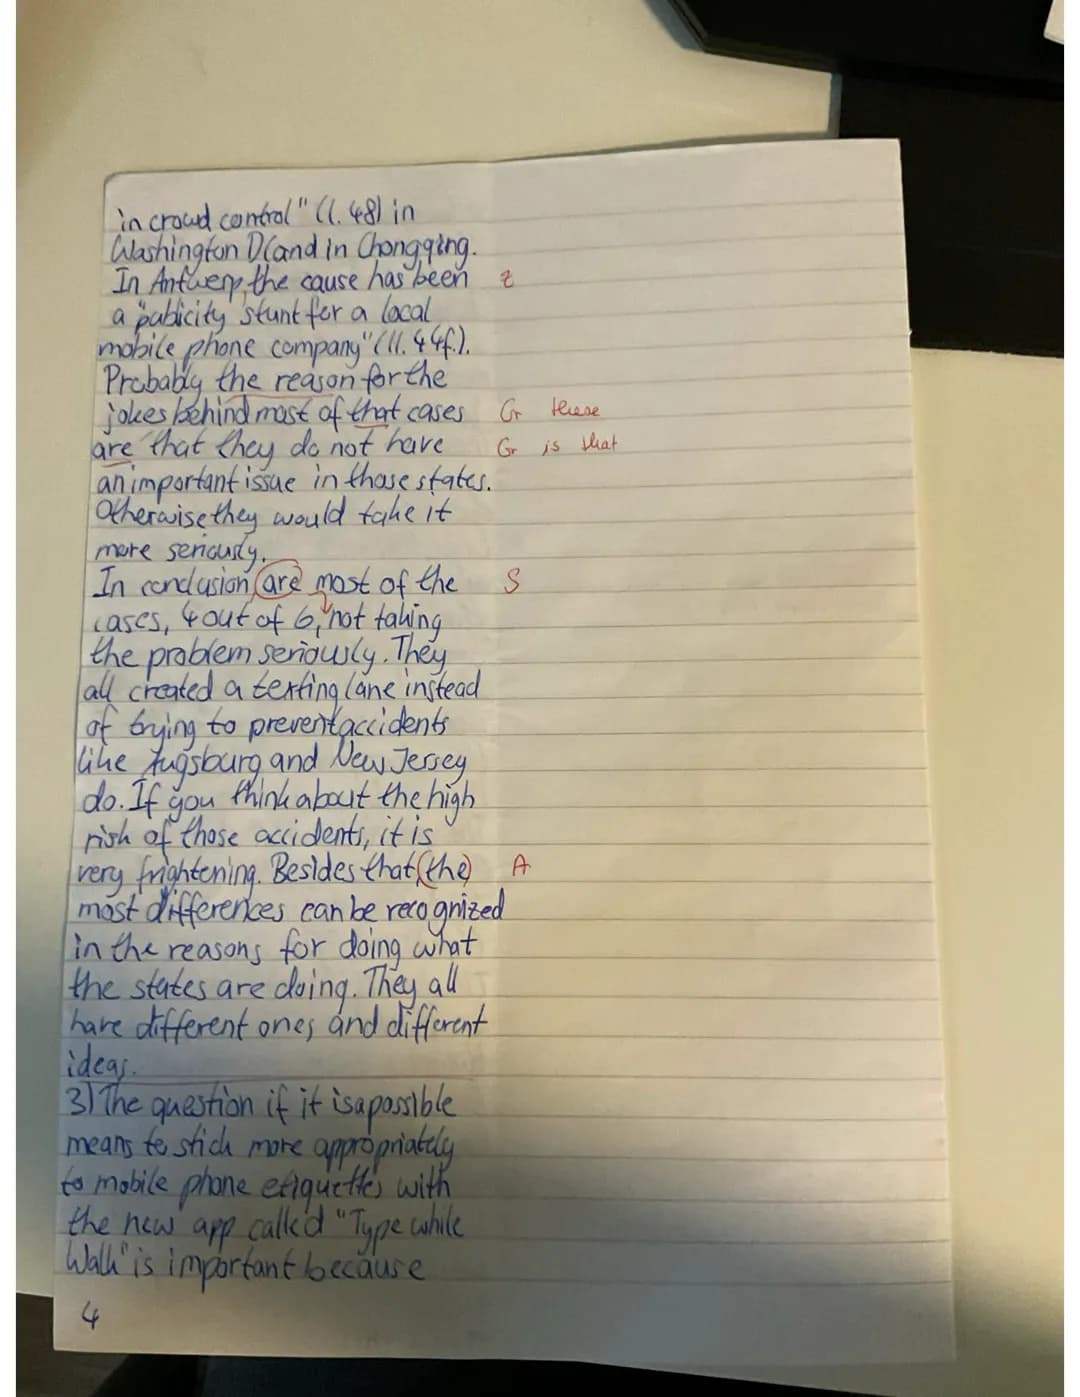 in crowd control" (l. 48) in
Washington DC and in Chongqing.
In Antwerp, the cause has been z
a "publicity stunt for a local
mobile phone company" (ll. 44f.).
Probably the reason for the
jokes behind most of that cases Gr these
are that they do not have Gr is that
an important issue in those states.
Otherwise they would take it
more seriously.
In conclusion are most of the S
cases, 4 out of 6, not taking
the problem seriously. They
all created a texting lane instead
of trying to prevent accidents
like Augsburg and New Jersey
do. If you think about the high
rish of those accidents, it is
very frightening. Besides that (the) A
most differences can be recognized
in the reasons for doing what
the states are doing. They all
have different ones and different
ideas.
3) The question if it is a possible
means to stich more appropriately
to mobile phone etiquettes with
the new app called "Type while
Walk" is important because
4